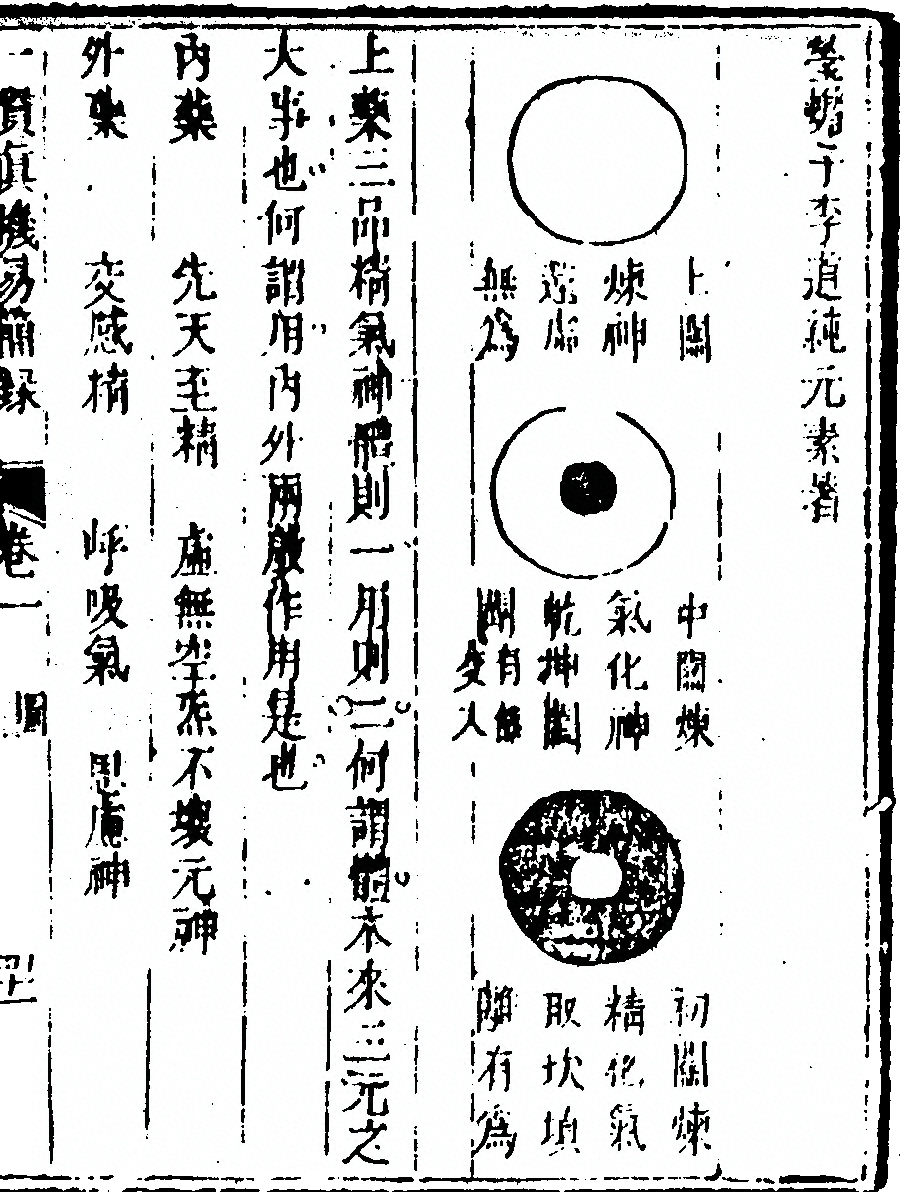 瑩蟾子李道純元素著
上關
煉神
還虛
無為
中關煉
氣化神
乾坤闔
闢有無
交入
初關煉
精化氣
取坎填
離有為
上藥三品精氣神體則一用則二何謂體本來三元之
大事也何謂用內外兩般作用是也
內藥 先天至精 虛無空炁 不壞元神
外藥 交感精 呼吸氣 思慮神
賢真機易簡錄 卷一